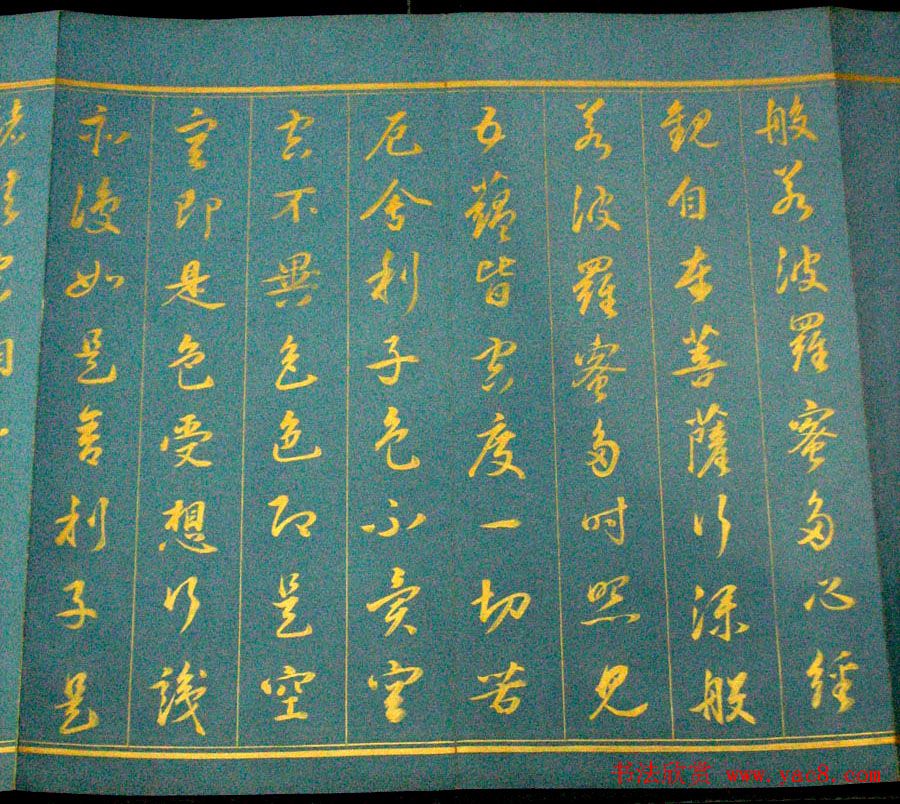 般若波羅蜜多心經
觀自在菩薩行深般
若波羅蜜多時照見
五蘊皆空度一切苦
厄舍利子色不異空
空不異色色即是空
空即是色受想行識
亦復如是舍利子是
书法欣赏 www.yac8.com